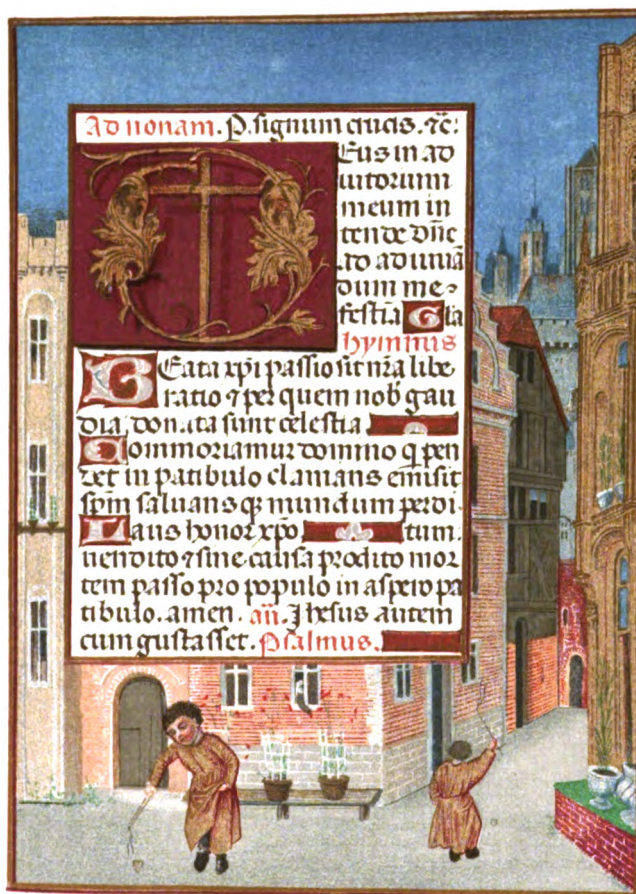 Ad nonam. P. signum crucis. ⁊c̄.
Deus in ad
iutorium
meum in
tende dn̄e
ad adiuuā
dum me
festīa Gla
hymnus
Beata xp̄i passio sit nr̄a libe
ratio ⁊ per quem nob̄ gau
dia donata sunt celestia
Commoriamur domino q̄ pen
det in patibulo clamans emisit
sp̄m saluans q̄ꝫ mundum perdi
Laus honor xp̄o tum.
uendito ⁊ sine causa prodito mor
tem passo pro populo in aspero pa
tibulo. amen. añ. Jhesus autem
cum gustasset. Psalmus.